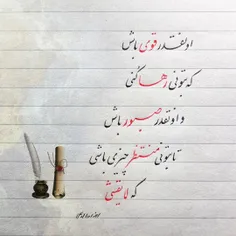 اونقدر قوی باش
که بتونی رها کنی
و اونقدر صبور باش
تا بتونی منتظر چیزی باشی
که لایقشی